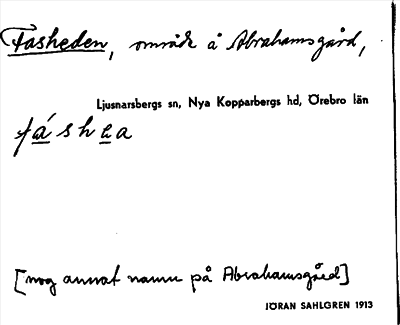 Fasheden, område å Abrahamsgård,
Ljusnarsbergs sn, Nya Kopparbergs hd, Örebro län
fás h e a
[nog annat namn på Abrahamsgård]
JÖRAN SAHLGREN 1913